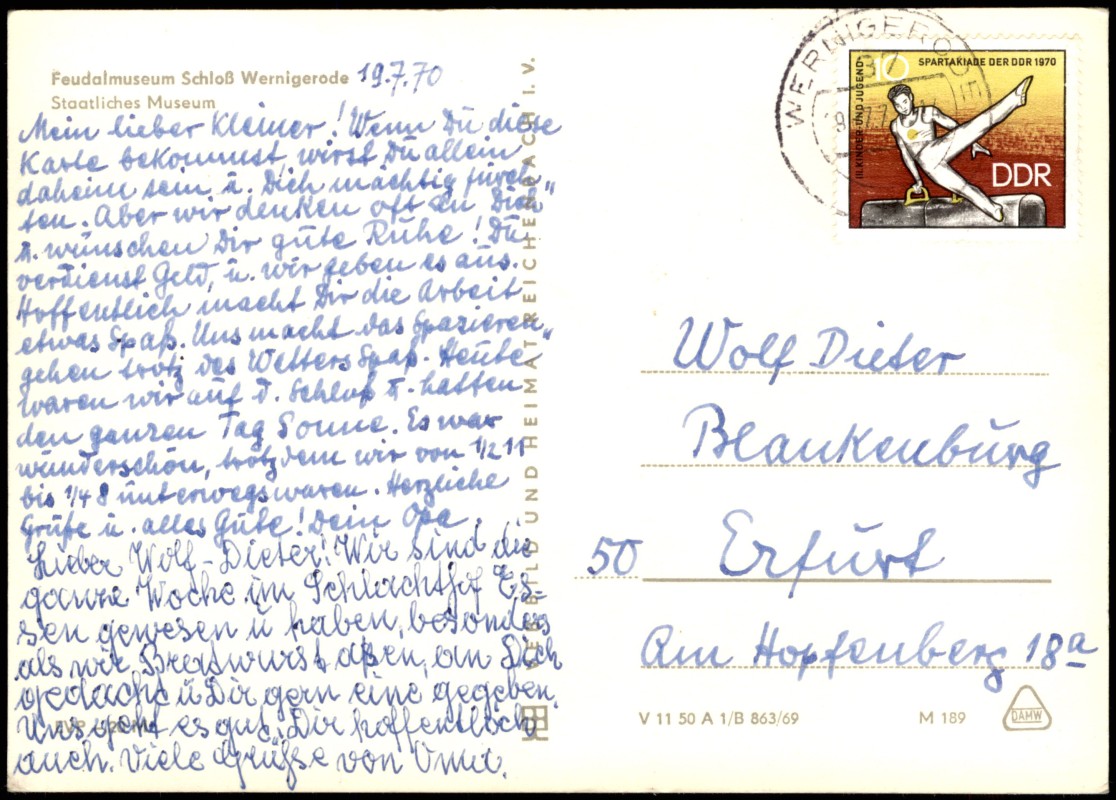 Feudalmuseum Schloß Wernigerode 19.7.70
Staatliches Museum
Mein lieber Kleiner! Wenn Du diese
Karte bekommst, wirst Du allein
daheim sein u. Dich mächtig fürch-
ten. Aber wir denken oft an "Dich"
u. wünschen Dir gute Ruhe! Du
verdienst Geld, u. wir geben es aus.
Hoffentlich macht Dir die Arbeit
etwas Spaß. Uns macht das Spazieren"
gehen trotz des Wetters Spaß. Heute
waren wir auf d. Schloß u. hatten
den ganzen Tag Sonne. Es war
wunderschön, trotzdem wir von 1/2 11
bis 1/4 8 unterwegs waren. Herzliche
Grüße u. alles Gute! Dein Opa.
Lieber Wolf-Dieter! Wir sind die
ganze Woche im Schlachthof Es-
sen gewesen u haben, besonders
als wir Bratwurst aßen, an Dich
gedacht u Dir gern eine gegeben.
Uns geht es gut. Dir hoffentlich
auch. Viele Grüße von Omi.
VEB BILD UND HEIMAT REICHENBACH I. V.
WERNIGERODE
III. KINDER- UND JUGEND-
10
SPARTAKIADE DER DDR 1970
DDR
Wolf Dieter
Blankenburg
50 Erfurt
Am Hopfenberg 18a
V 11 50 A 1/B 863/69
M 189
DAMW